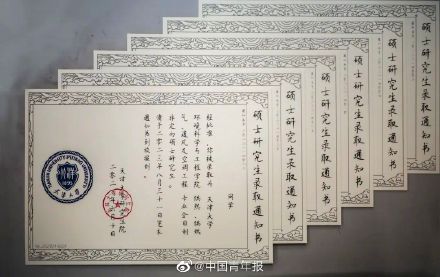 硕士研究生录取通知书
硕士研究生录取通知书
硕士研究生录取通知书
硕士研究生录取通知书
硕士研究生录取通知书
硕士研究生录取通知书
同学
经批准，你被录取为 天津大学
环境科学与工程学院 供热、供燃
气、通风及空调工程 专业全日制
非定向硕士研究生。
请于二〇二三年八月三十一日凭本
通知书到校报到。
天津大学研究生院
@中国青年报